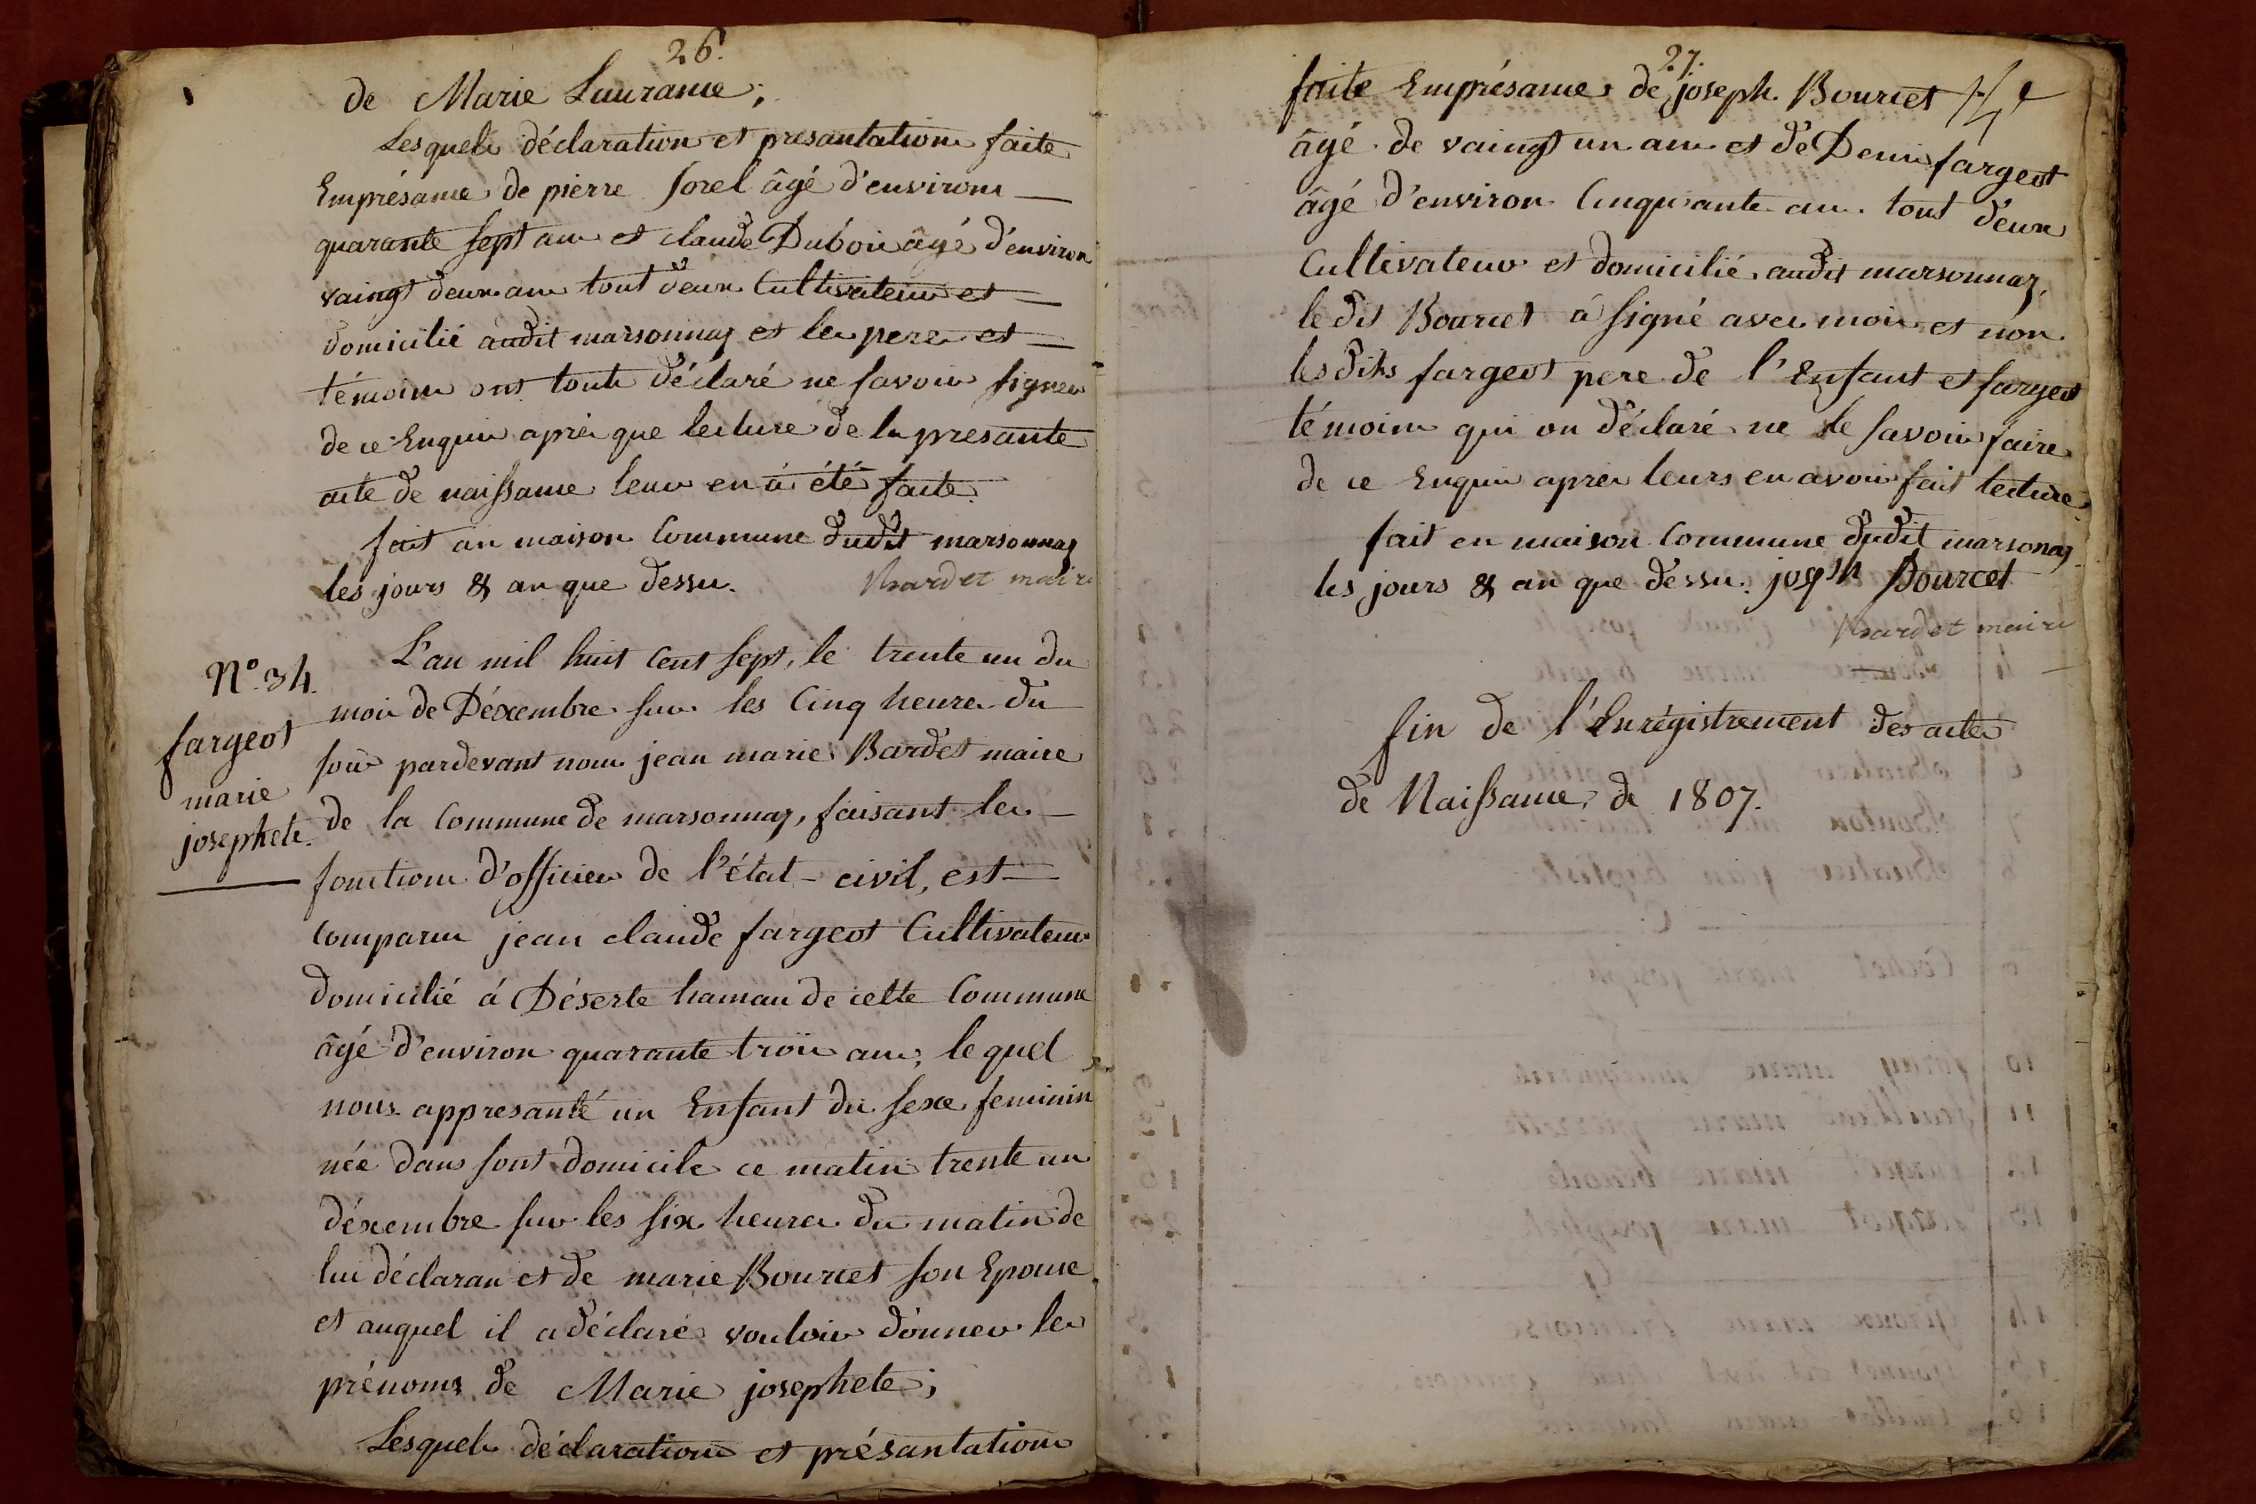 26.
de Marie Laurance;
Lesquels déclaration et presantation faite
Emprésance de pierre Sorel âgé d'environs
quarante sept ans et claude Dubois âgé d'environ
vaingt deux ans tout deux Cultivateurs et
domicilié audit marsonnaz et les peres et
témoins ont touts déclaré ne savoir signer
de ce Enquis après que lecture de la presante
acte de naissance leur en á été faite.
fait an maison Commune dudit marsonnaz
les jours & an que dessu. Bardet maire
N.° 34.
fargeot
marie
josephete.
L'an mil huit Cent sept, le trente un du
mois de Déxembre sur les Cinq heures du
soir pardevant nous jean marie Bardet maire
de la Commune de marsonnaz, faisant les
fonctions d'officier de l'état-civil, est
Comparus jean claude fargeot Cultivateur
domicilié á Déserte hamau de cette Commune
âgé d'environ quarante trois ans, lequel
nous appresanté un Enfant du sexe feminin
née dans sont domicile ce matin trente un
déxembre sur les six heures du matin de
lui déclaran et de marie Bourcet son Epouse
et auquel il a déclaré vouloir donner les
prénoms de Marie josephete;
Lesquels déclarations et présantations
27.
faite Emprésance de joseph Bourcet
âgé de vaingt un ans et de Denis fargeot
âgé d'environ Cinquante ans tout deux
Cultivateur et domicilié audit marsonnaz,
le dit Bourcet á signé avec mois et non
les dits fargeot pere de l'Enfant et fargeot
témoins qui on déclaré ne le savoir faire
de ce Enquis après leurs en avoir fait lecture.
fait en maison Commune dudit marsonaz
les jours & an que dessu. joseph Bourcet
Bardet maire
fin de l'Enrégistrement des actes
de Naissance de 1807.